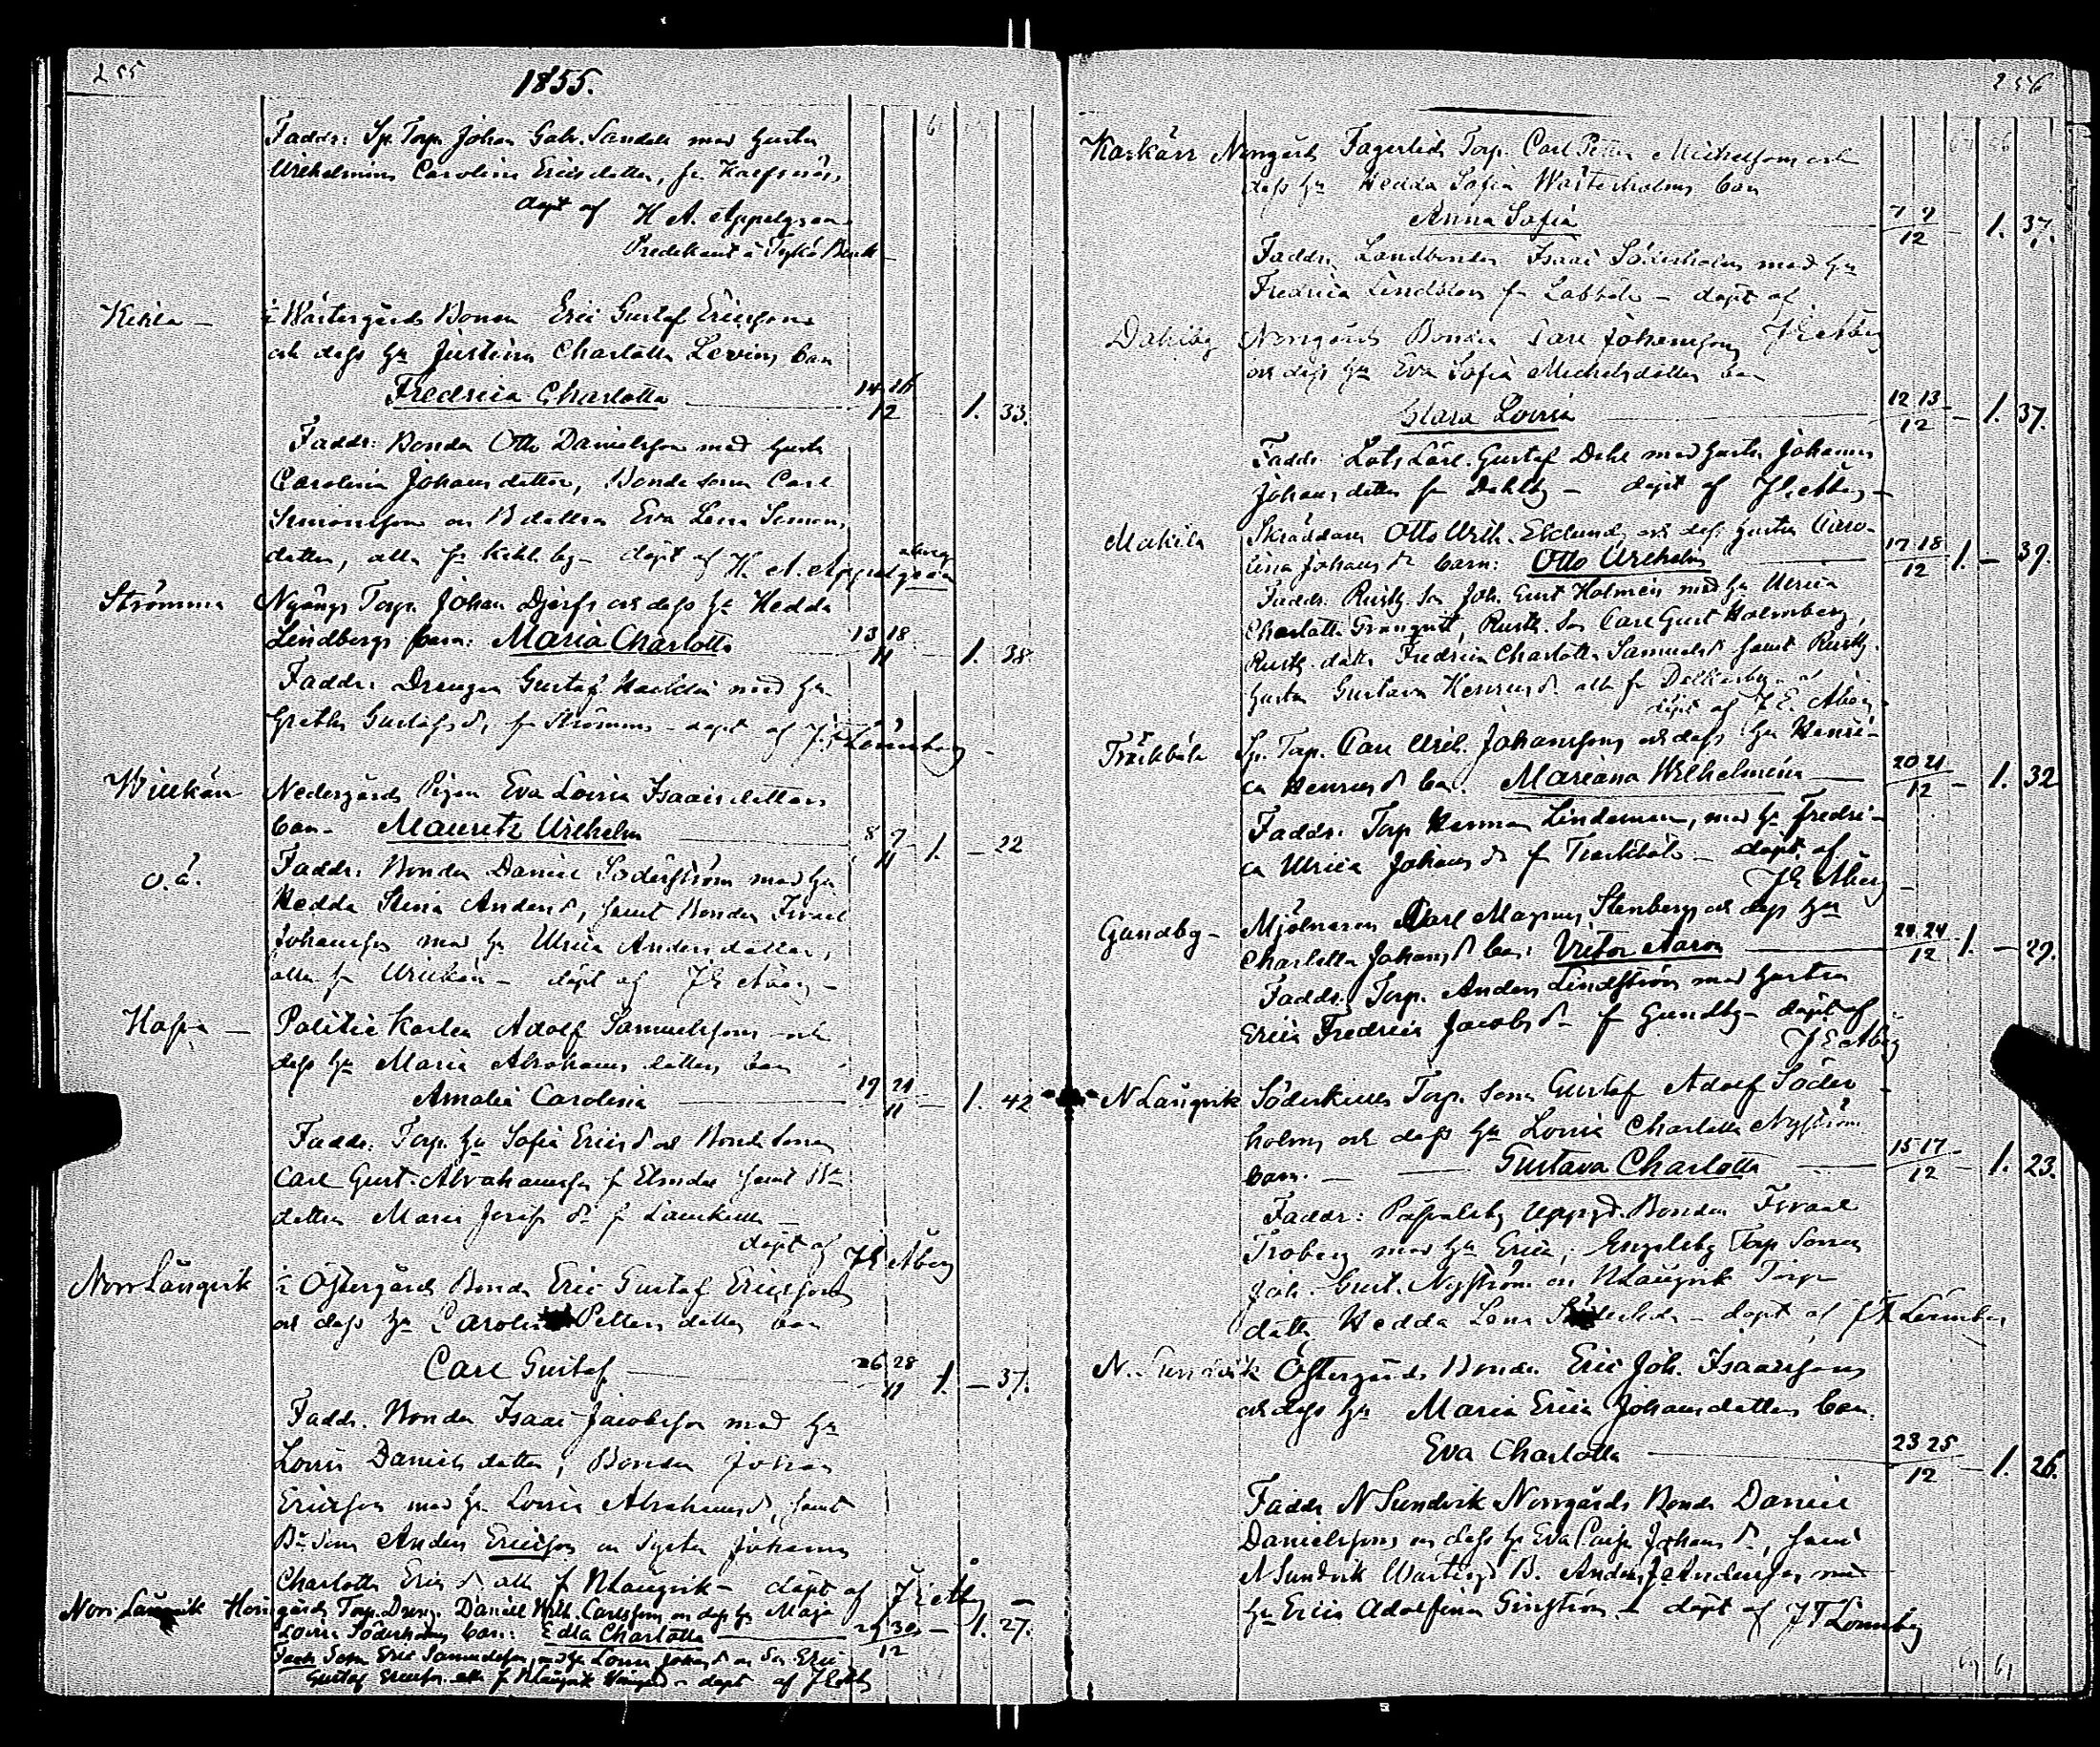 255
1855.
Faddr: Sp. Torp. Johan Gab. Sandell med hustru
Wilhelmina Carolina Ericsdotter, fr.
döpt af H A. Appelgren
Predikant å Tykö Bruk
Kihla — i Wästergårds Bonden Eric Gustaf Ericssons
och dess hu Justina Charlotta Levins barn
Fredrica Charlotta 14 16 / 12 1. 33.
Faddr: Bonden Otto Danielsson med hustru
Carolina Johansdotter, Bondesonen Carl
Simonsson och B dottren Eva Lena Simons
dotter, alla fr Kihla by — döpt af H. A. Appelgren
Strömma Nygångs Torp. Johan Djerfs och dess hu Hedda
Lindbergs barn: Maria Charlotta 13 18 / 11 — 1. 38.
Faddr: Drengen Gustaf med hu
Greta Gustafsdr fr Strömma — döpt af J. T. Lönnberg —
Wiikkari Nedergårds Pigan Eva Lovisa Isaacsdotters
barn — Mauritz Wilhelm 8 9 / 11 1. — 22
o.ä. Faddr: Bonden Daniel Söderström med hu
Hedda Stina Andersdr, samt Bonden Israel
Johansson med hu Ulrica Andersdotter,
alla fr — döpt af J E Åberg —
Politie Karlen Adolf Samuelssons och
dess hu Maria Abrahamsdotters barn
Amalia Carolina 19 21 / 11 — 1. 42
Faddr: Torp. hu Sofia Ericsdr och Bondesonen
Carl Gust. Abrahamsson fr samt B
dottren Maria Josefsdr fr
döpt af J E Åberg
Norr Långvik i Östergårds Bonden Eric Gustaf Ericssons
och dess hu Carolina Pettersdotters barn
Carl Gustaf 26 28 / 11 1. — 37.
Faddr. Bonden Isaac Jacobsson med hu
Lovisa Danielsdotter, Bonden Johan
Ericsson med hu Lovisa Abrahamsdr, samt
Bde Son Anders Ericsson och Syster Johanna
Charlotta Ericsdr alla fr N Långvik — döpt af J E Åberg —
Norr Långvik gårds Torp. Dreng. Daniel Wilh. Carlssons och dess hu Maja
Lovisa Söderholms barn: Edla Charlotta 29 30 / 12 — 1. 27.
Fadd Son Eric Samuelsson med hu Lovisa Johansdr och Son Eric
Gustaf Ericsson alla fr N Långvik — döpt af J E Åberg
256
Karkärr Norrgårds Fagerlids Torp. Carl Petter Michelssons och
dess hu Hedda Sofia Wästerholms barn
Anna Sofia 7 9 / 12 — 1. 37.
Faddr. Landbonden Isaac Söderholm med hu
Fredrica Lindblom fr Labböle — döpt af
J E Åberg
Dahlby Norrgårds Bonden Carl Johanssons
och dess hu Eva Sofia Michelsdotters barn
Clara Lovisa 12 13 / 12 — 1. 37.
Faddr: Lots Lärl. Gustaf Dahl med hustru Johanna
Johansdotter fr Dahlby — döpt af J E Åberg —
Makila Skräddaren Otto Wilh. Eklunds och dess hustru Caro-
lina Johansdr barn: Otto Wilhelm 17 18 / 12 1. — 39.
Faddr. Rusth. Son Joh. Gust Holmén med hu Ulrica
Charlotta Granqvist, Rusth. Son Carl Gust Holmberg,
Rusth. dottr Fredrica Charlotta Samuelsdr samt Rusth.
hustru Gustava Henricsdr alla fr
döpt af J. E. Åberg
Träskböle Sp. Torp. Carl Wilh. Johanssons och dess hu Henri-
ca Henricsdr barn. Mariana Wilhelmina 20 21 / 12 — 1. 32
Faddr. Torp Herman Lindeman, med hu Fredri-
ca Ulrica Johansdr fr Träskböle — döpt af
J E Åberg —
Gundby — Mjölnaren Carl Magnus Stenbergs och dess hu
Charlotta Johansdr barn: Victor Aaron 24 / 12 1. — 29.
Faddr. Torp. Anders Lindström med hustru
Erica Fredrica Jacobsdr — fr Gundby — döpt af
J E Åberg
N Långvik Söderkulla Torp. Sonen Gustaf Adolf Söder
holms och dess hu Lovisa Charlotta Nyströms
barn. — Gustava Charlotta 15 17 / 12 — 1. 23.
Faddr: Bonden Israel
Troberg med hu Erica, Engelsby Torp Sonen
Joh. Gust. Nyström och N Långvik Torp
dottr Hedda Lena — döpt af J T Lönnberg
N. Sundvik Östergårds Bonden Eric Joh. Isaacssons
och dess hu Maria Erica Johansdotters barn.
Eva Charlotta 23 25 / 12 — 1. 26.
Faddr N Sundvik Norrgårds Bonde Daniel
Danielssons och dess hu Eva Johansdr, samt
N Sundvik Westergd B. Anders Andersson med
hu Erica Adolfina — döpt af J T Lönnberg